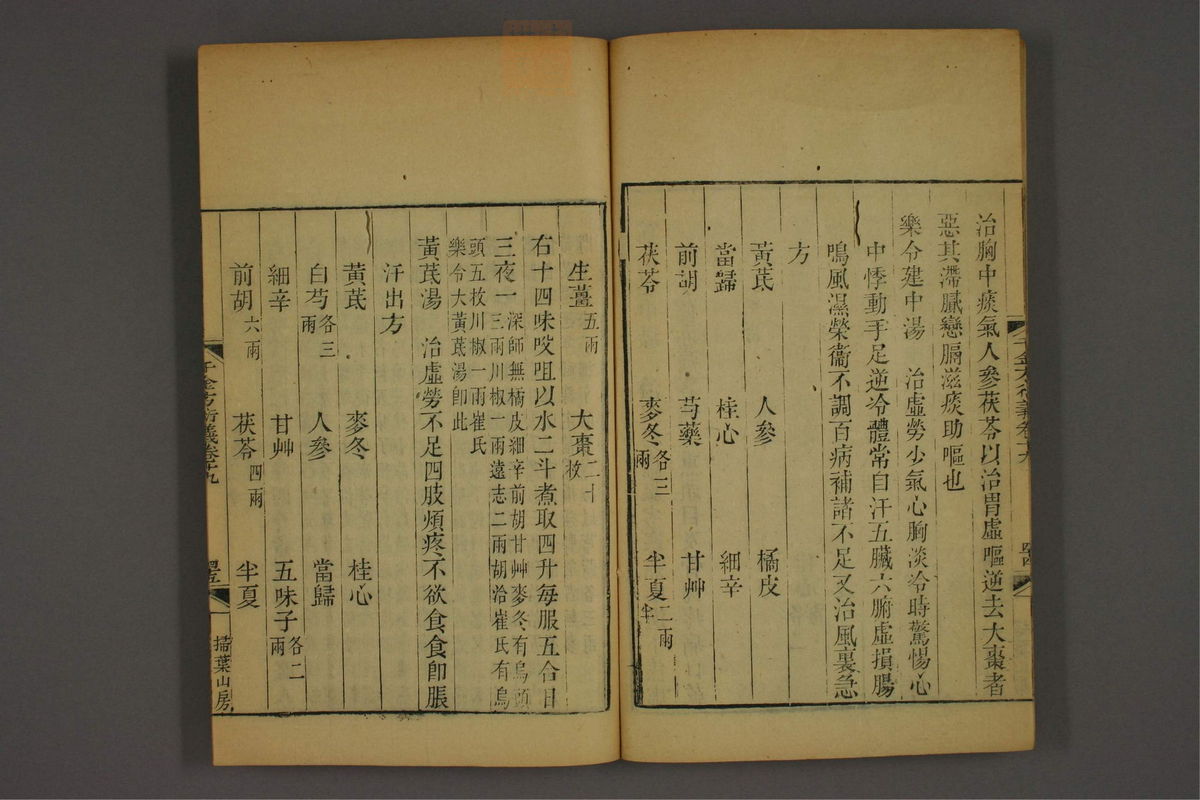 治胸中痰氣人參茯苓以治胃虛嘔逆去大棗者
惡其滯膩戀膈滋痰助嘔也
樂令建中湯　治虛勞少氣心胸淡冷時驚惕心
中悸動手足逆冷體常自汗五臟六腑虛損腸
鳴風濕榮衞不調百病補諸不足又治風裏急
方
黃芪　人參　橘皮
當歸　桂心　細辛
前胡　芍藥　甘艸
茯苓　麥冬各三兩　半夏二兩半
生薑五兩　大棗二十枚
右十四味㕮咀以水二斗煮取四升每服五合日
三夜一深師無橘皮細辛前胡甘艸麥冬有烏頭
三兩川椒一兩遠志二兩胡洽崔氏有烏
頭五枚川椒一兩崔氏
樂令大黃芪湯卽此
黃芪湯　治虛勞不足四肢煩疼不欲食食卽脹
汗出方
黃芪　麥冬　桂心
白芍各三兩　人參　當歸
細辛　甘艸　五味子各二兩
前胡六兩　茯苓四兩　半夏
千金方衍義卷十九
掃葉山房